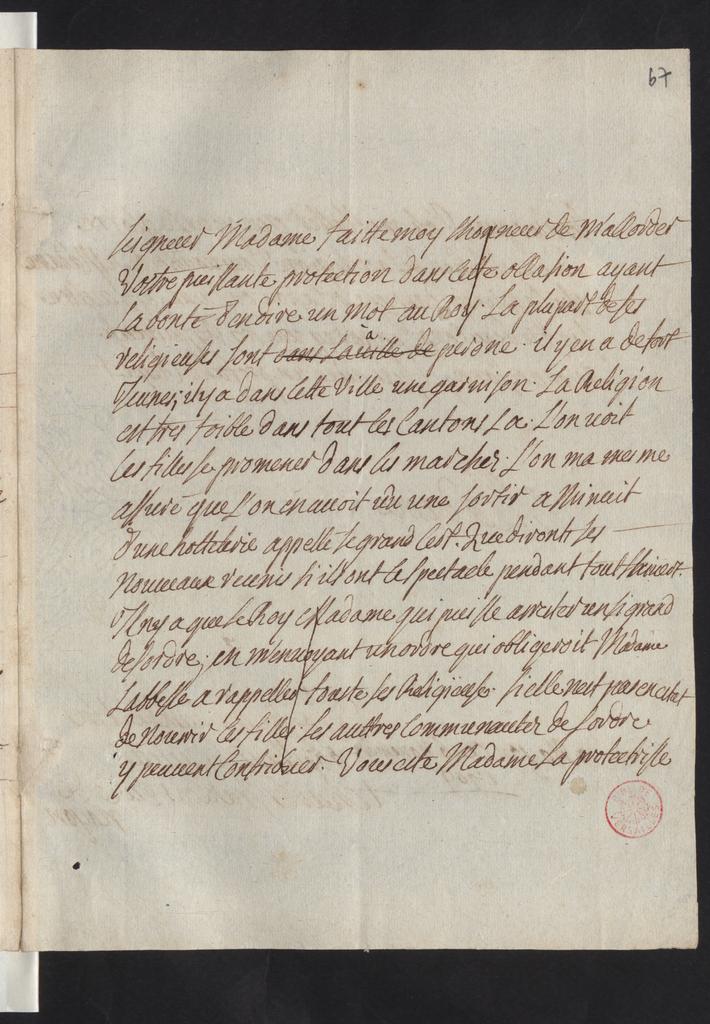 67
seigneur Madame faitte moy lhonneur de m'accorder
Vostre puissante protection dans cette occasion ayant
La bonté d'en dire un mot au Roy. La plupart de ses
religieuses sont dans la ville de à perone. il y en a de fort
Jeunes; il y a dans cette Ville une garnison. La Religion
est tres foible dans tout ces Cantons La. L'on voit
ces filles se promener dans les marchez. L'on ma mesme
assuré que l'on en avoit vu une sortir a Minuit
d'une hottelerie appellé le grand Cerf. Que diront les
Nouveaux reunis s'ils ont ce spectacle pendant tout l'hivert.
Il ny a que le Roy et Madame qui puisse arrester un si grand
desordre; en m'envoyant un ordre qui obligeroit Madame
L'abbesse a rappeller toutte ses Religieuse. si elle n'est pas en estat
de Nourrir ces filles. les auttres Communautez de l'ordre
y peuvent Contribuer. Vous este Madame La protectrisse